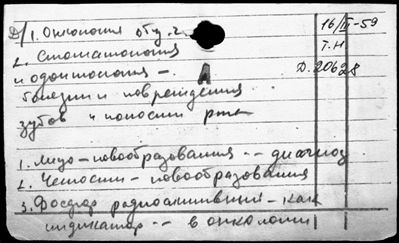 Д/1. Онкология общ. ч. 16/III-59
2. Стоматология Т.Н
и одонтология —. А Д. 20628
болезни и повреждения
зубов и полости рта
1. Лицо — новообразования -- диагноз
2. Челюсти — новообразования
3. Фосфор радиоактивный — как
индикатор -- в онкологии